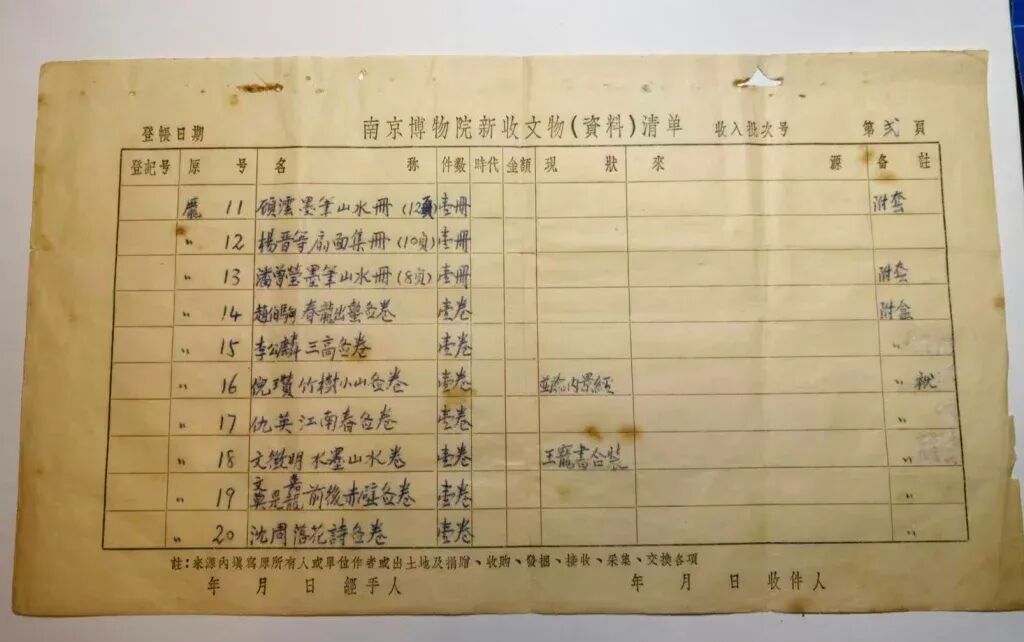 南京博物院新收文物(資料)清单
登帳日期 收入批次号 第贰頁
登記号 原号 名称 件数 時代 金額 現狀 來源 备註
龐 11 碩澐墨筆山水冊(12頁) 壹冊 附套
〃 12 楊晋等扇面集冊(10頁) 壹冊
〃 13 潘曾瑩墨筆山水冊(8頁) 壹冊 附套
〃 14 趙伯駒春龍出蟄啚卷 壹卷 附盒
〃 15 李公麟三高啚卷 壹卷 〃
〃 16 倪瓚竹樹小山啚卷 壹卷 内景經 〃
〃 17 仇英江南春啚卷 壹卷 〃
〃 18 文徵明水墨山水卷 壹卷 王寵書合裝 〃
〃 19 文嘉 莫是龍前後赤壁啚卷 壹卷 〃
〃 20 沈周落花詩啚卷 壹卷 〃
註:來源内填寫原所有人或單位作者或出土地及捐贈、收购、發掘、接收、采集、交換各項
年 月 日 經手人 年 月 日 收件人